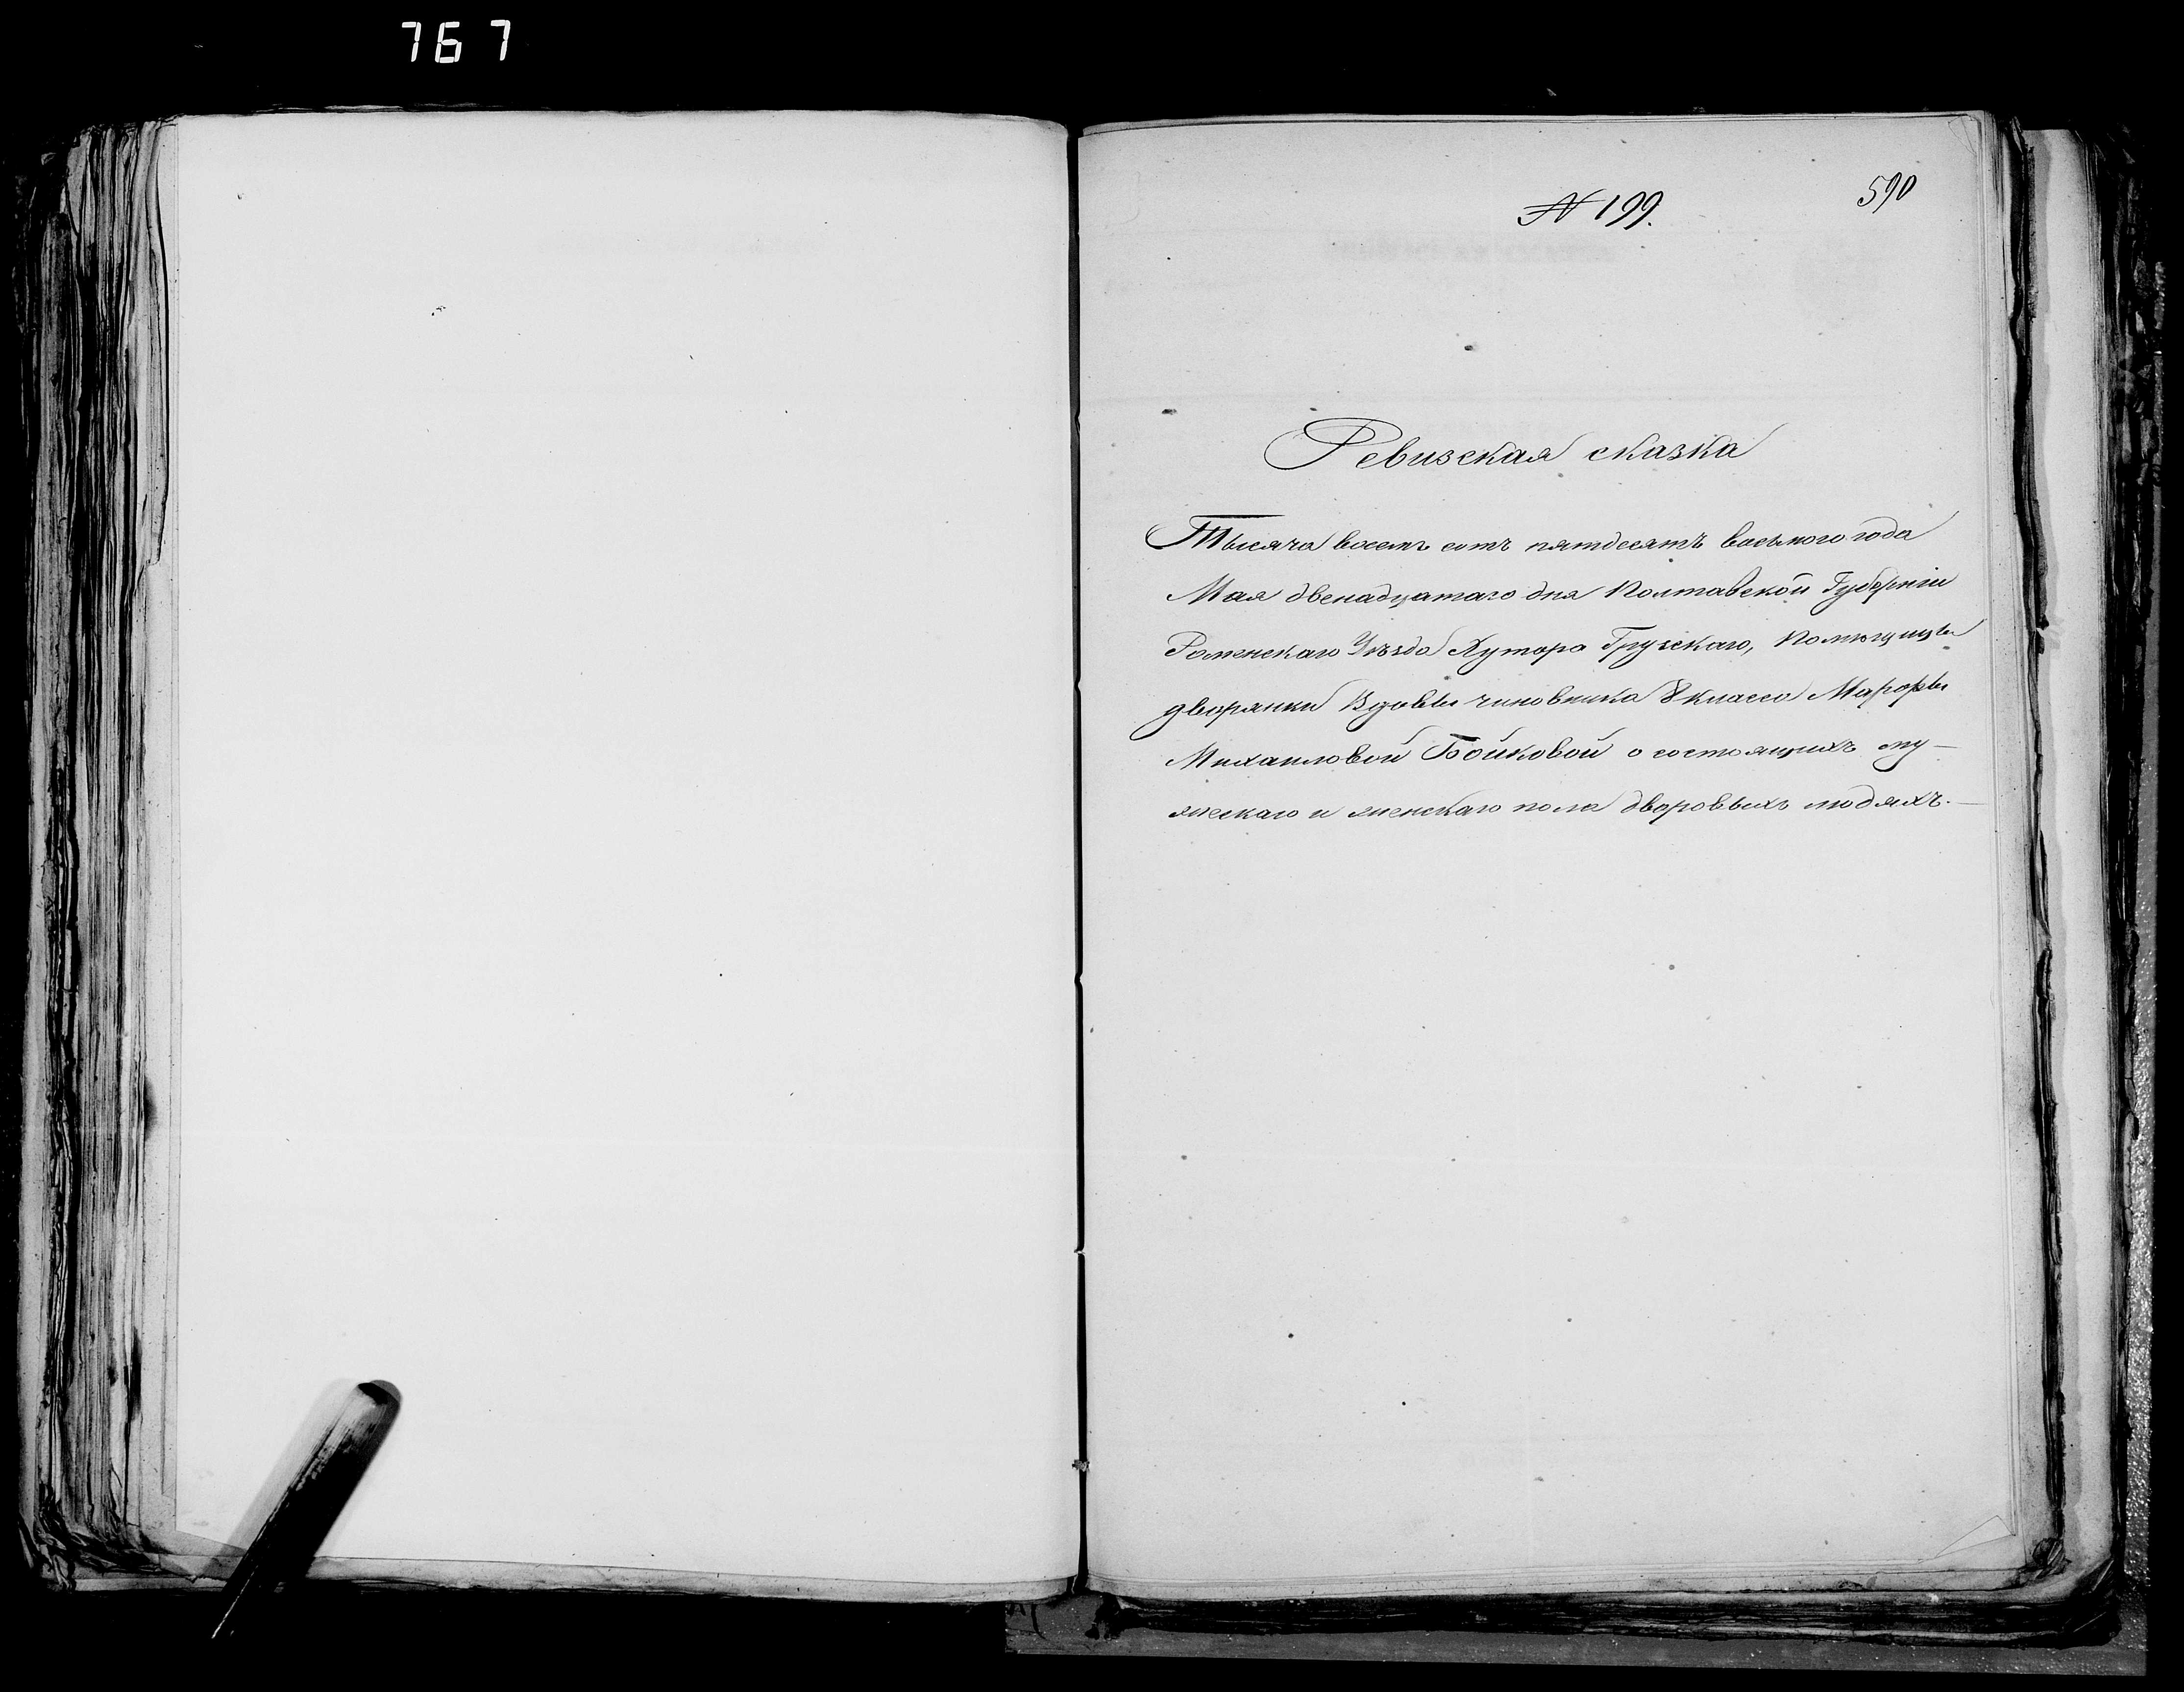 767
590
№ 199.
Ревизская сказка
Тысяча восемь сотъ пятдесятъ восьмого года
Мая двенадцатаго дня Полтавской Губерніи
Роменскаго Уѣзда Хутора Грузскаго, Помѣщицы
дворянки Вдовы чиновника 8 класса Марфы
Михайловой Бойковой о состоящихъ му-
жескаго и женскаго пола дворовыхъ людяхъ.